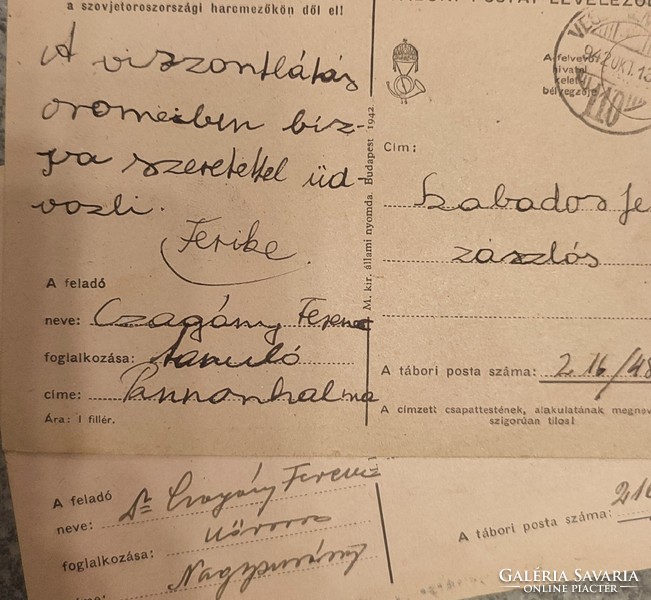 a szovjetoroszországi harcmezőkön dől el!
TÁBORI POSTAI LEVELEZŐL
A viszontlátás
örömeiben bíz-
va szeretettel üd-
vözli.
Ferike
A feladó
neve: Czagány Ferenc
foglalkozása: tanuló
címe: Pannonhalma
Ára: 1 fillér.
M. kir. állami nyomda. Budapest 1942.
A felvevő
hivatal
kelet
bélyegzője
942 OKT. 13
110
Cím:
Szabados Je
zászlós
A tábori posta száma: 216/48
A címzett csapattestének, alakulatának megnev
szigorúan tilos!
A feladó
neve: Dr Czagány Ferenc
foglalkozása:
A tábori posta száma: 216
GALÉRIA SAVARIA
ONLINE PIACTÉR